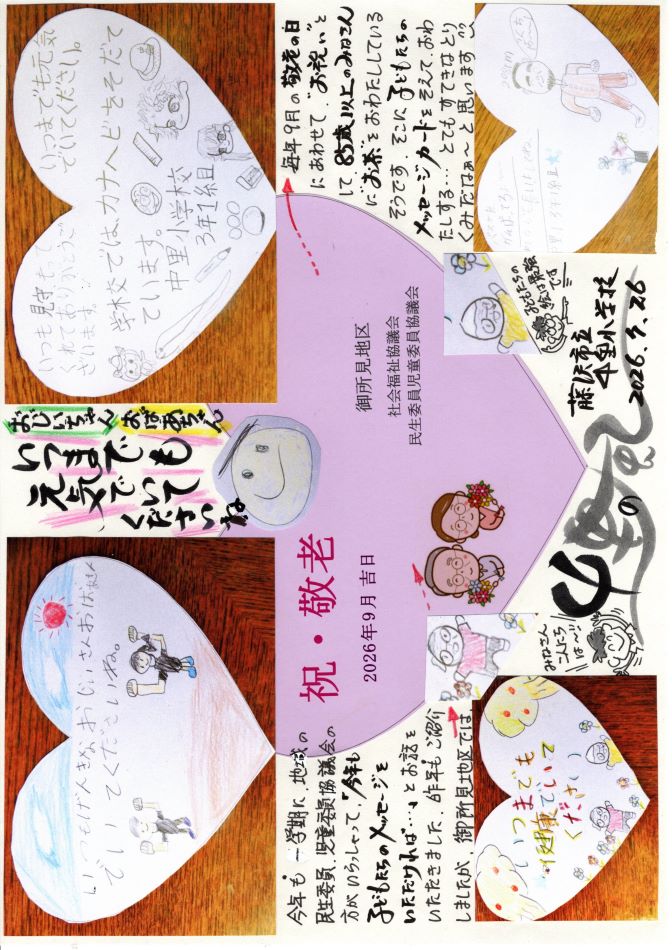 中里の風
藤沢市立中里小学校
みなさんこんにちは〜!
子どもたちの絵は最強です
今年も一学期に、地域の
民生委員、児童委員協議会の
方がいらっしゃって、「今年も
子どもたちのメッセージを
いただければ…」とお話を
いただきました。昨年もご紹介
しましたが、御所見地区では
毎年9月の敬老の日
にあわせて、"お祝い"と
して85歳以上のみなさん
に"お茶"をおわたししている
そうです。そこに子どもたちの
メッセージカードをそえて、おわ
たしする…とてもすてきなとり
くみだなぁ〜と思います。
祝・敬老
2026年9月 吉日
御所見地区
社会福祉協議会
民生委員児童委員協議会
おじいちゃん おばあちゃん
いつまでも
元気でいて
くださいね
いつまでも
健康でいて
ください
いつもげんきなおじいさんおばあさん
でいてくださいね。
いつまでも元気
でいてください。
学校ではカナヘビをそだて
ています。
中里小学校
3年1組
いつも見守って
くれてありがとうご
ざいます。